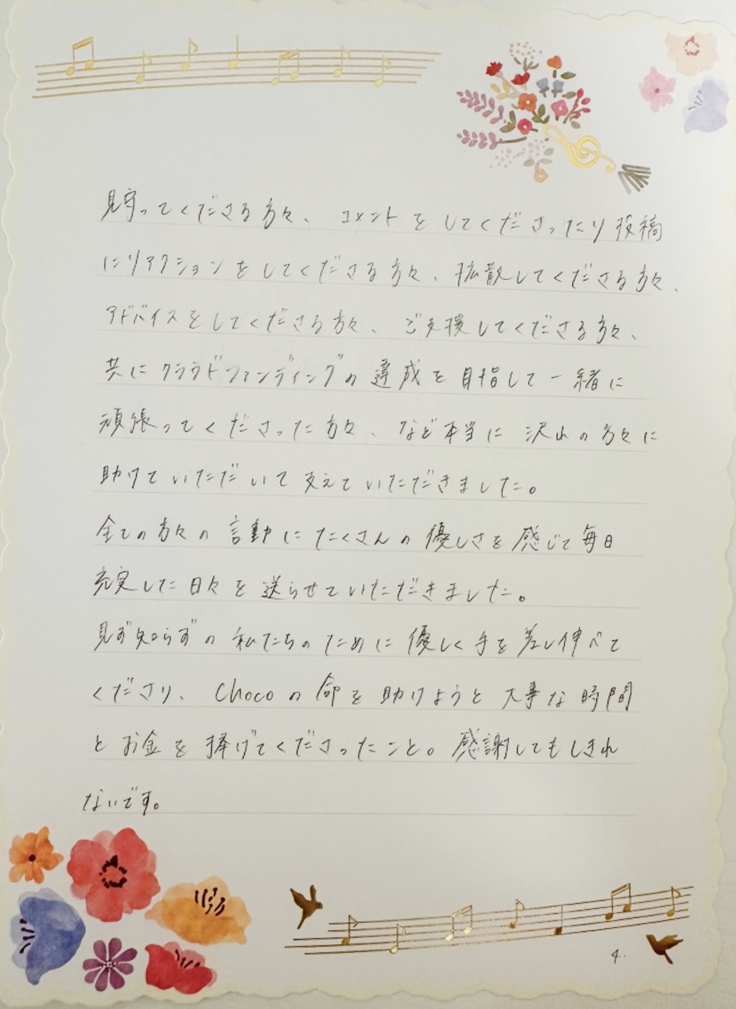 見守ってくださる方々、コメントをしてくださったり投稿
にリアクションをしてくださる方々、拡散してくださる方々、
アドバイスをしてくださる方々、ご支援してくださる方々、
共にクラウドファンディングの達成を目指して一緒に
頑張ってくださった方々、など本当に沢山の方々に
助けていただいて支えていただきました。
全ての方々の言動にたくさんの優しさを感じて毎日
充実した日々を送らせていただきました。
見ず知らずの私たちのために優しく手を差し伸べて
くださり、Chocoの命を助けようと大事な時間
とお金を捧げてくださったこと。感謝してもしきれ
ないです。
4.